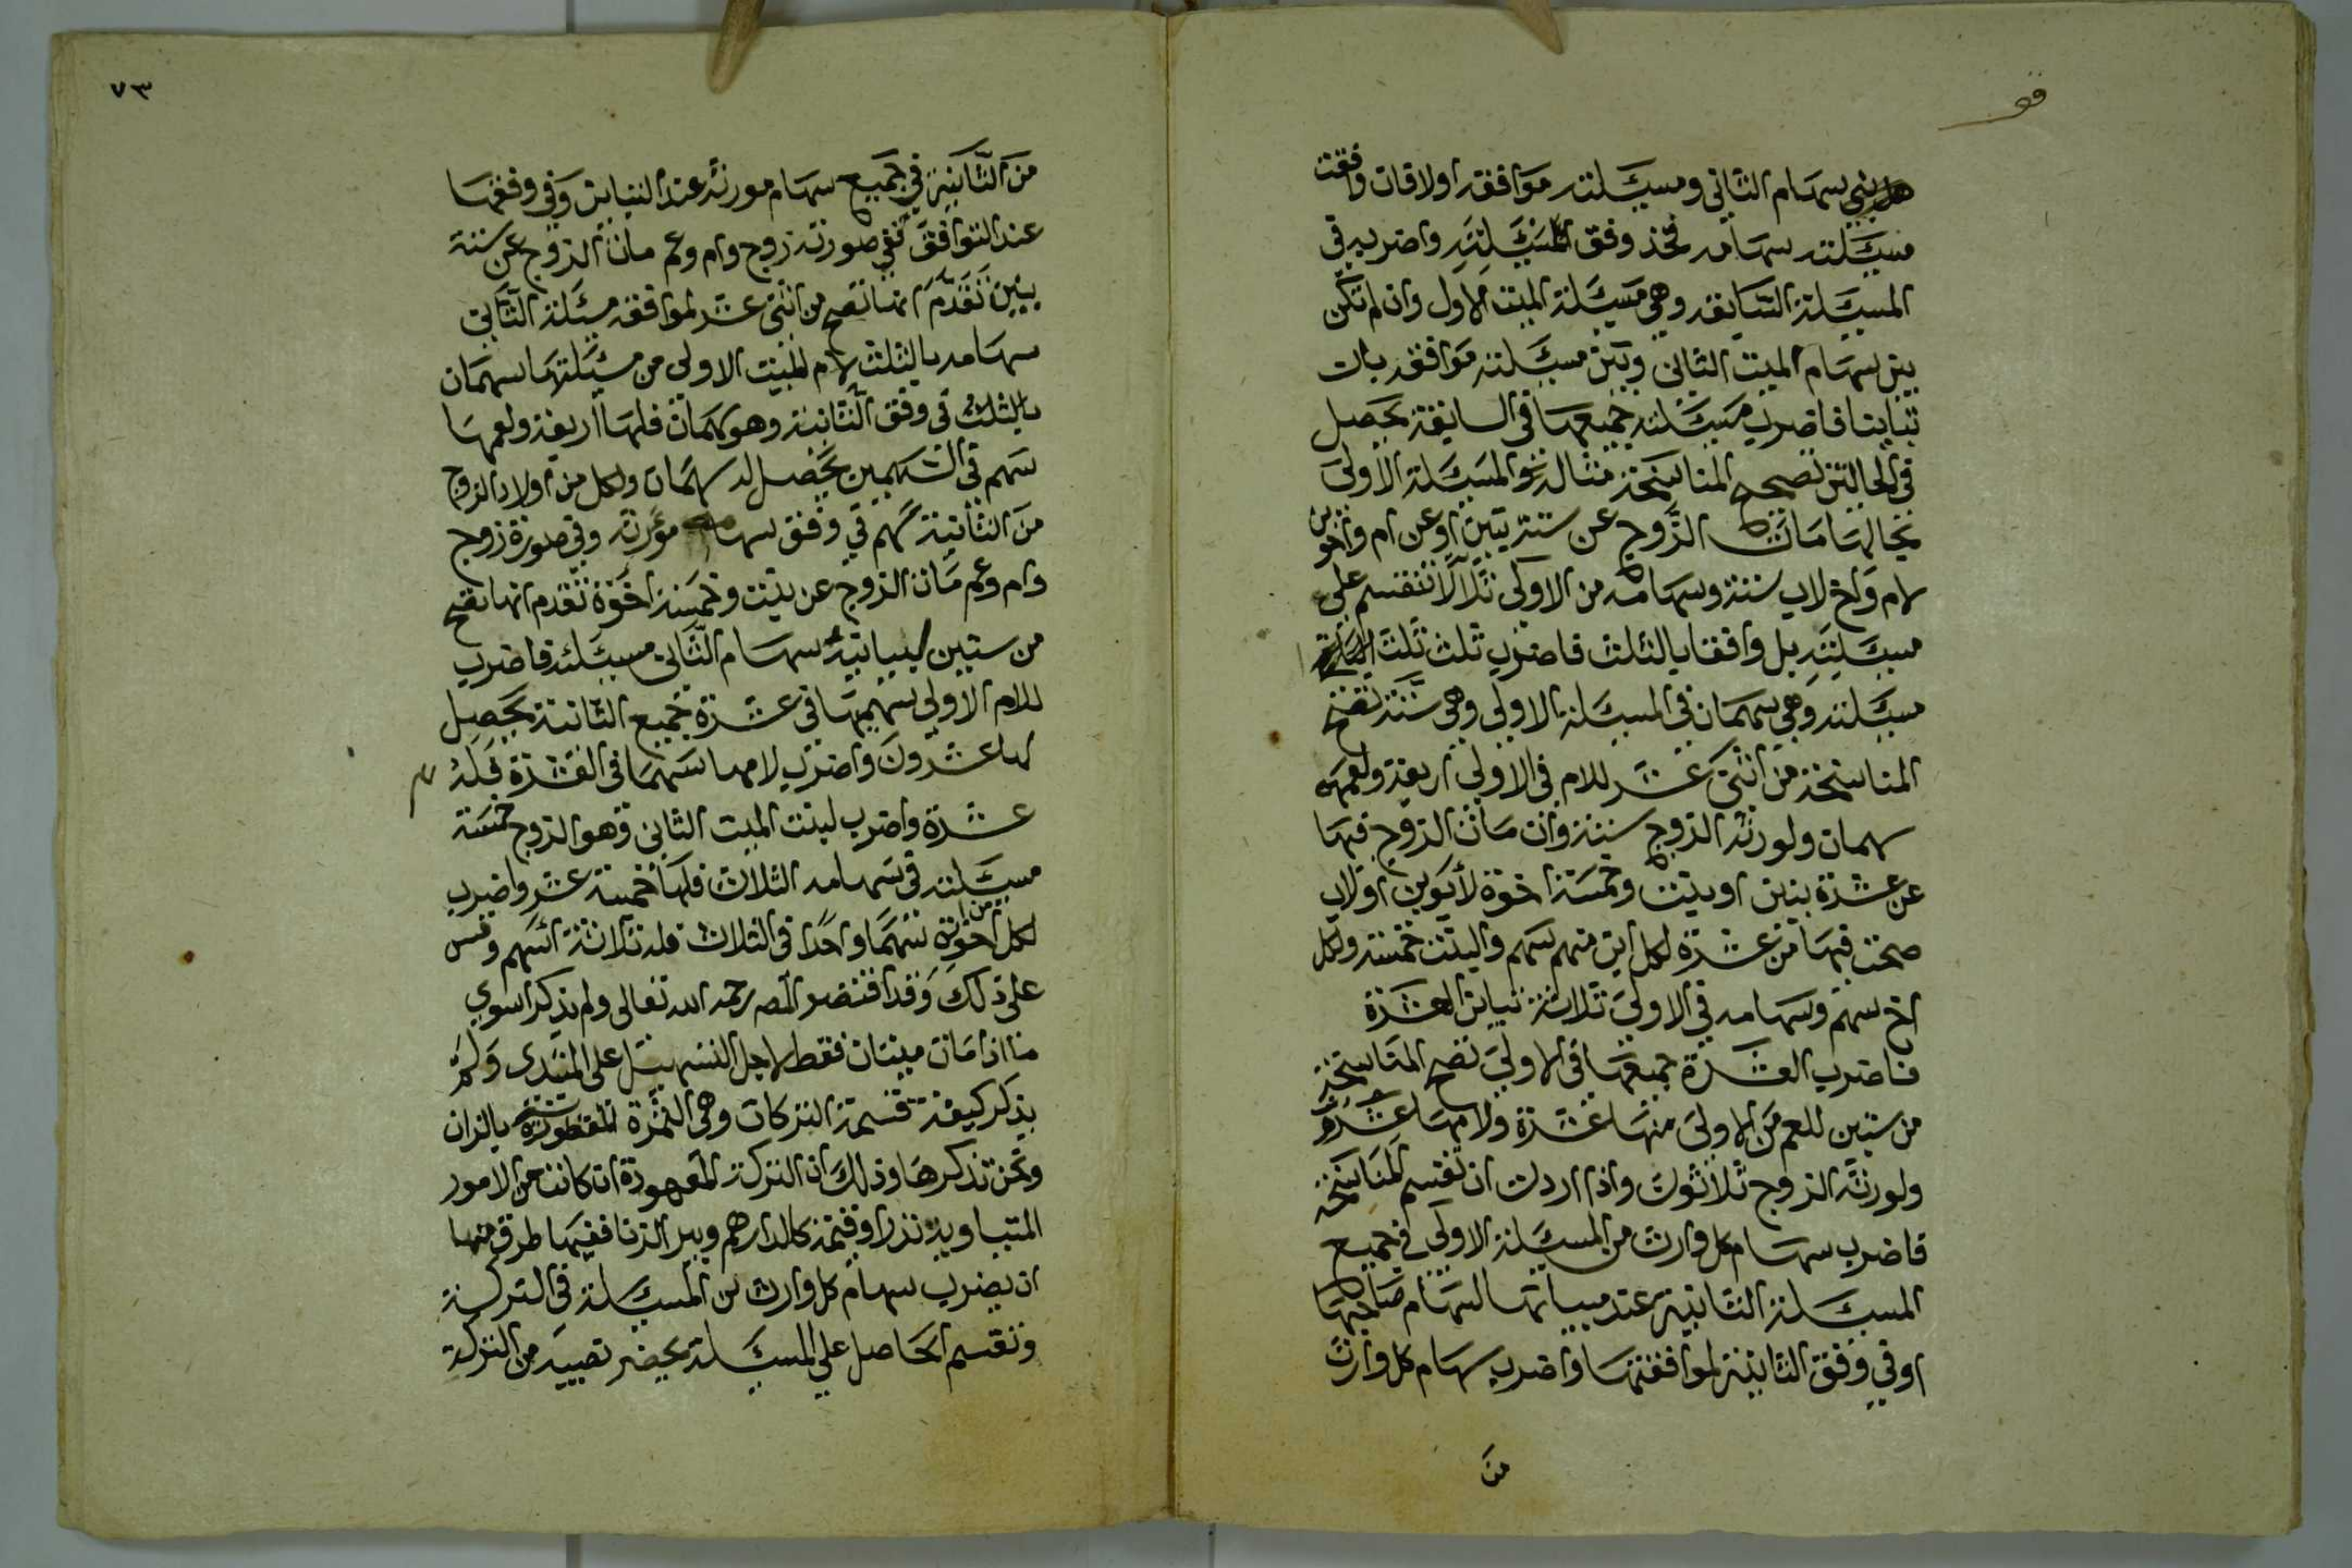 هل بين سهام الثاني ومسئلته موافقة اولا فان وافقت
مسئلته سهامه فخذ وفق المسئلته واضربه في
المسئلة السابقة وهي مسئلة الميت الاول وان لم تكن
بين سهام الميت الثاني وبين مسئلته موافقة بان
تباينا فاضرب مسئلته جميعها في السابقة يحصل
في الحالتين تصحيح المناسخة مثاله نحو المسئلة الاولى
بحالها مات الزوج عن ستة بنين او عن ام واخوين
لام واخ لاب ستة وسهامه من الاولى ثلاثة لا تنقسم على
مسئلته بل وافقا بالثلث فاضرب ثلث
مسئلته وهي سهمان في المسئلة الاولى وهي ستة تصح
المناسخة من اثنى عشر للام في الاولى اربعة ولعمه
سهمان ولورثة الزوج ستة وان مات الزوج فيها
عن عشرة بنين او بنت وخمسة اخوة لأبوين او لاب
صحت فيها من عشرة لكل ابن منهم سهم والبنت خمسة ولكل
اخ سهم وسهامه في الاولى ثلاثة تباين العشرة
فاضرب العشرة جميعها في الاولى تصح المناسخة
من ستين للعم من الاولى منها عشرة ولامها عشرون
ولورثة الزوج ثلاثون واذا اردت ان تقسم المناسخة
فاضرب سهام كل وارث من المسئلة الاولى في جميع
المسئلة الثانية عند مباينتها لسهام صاحبها
او في وفق الثانية لموافقتها واضرب سهام كل وارث
من
٧٣
من الثانية في جميع سهام مورثه عند التباين وفي وفقها
عند التوافق ففي صورته زوج وام وعم مات الزوج عن ستة
بنين تقدم انها تصح من اثنى عشر لموافقة مسئلة الثاني
سهامه بالثلث لام الميت الاولى من مسئلتها سهمان
بالثلث في وفق الثانية وهو سهمان فلها اربعة ولعمها
سهم في السهمين يحصل له سهمان ولكل من اولاد الزوج
من الثانية سهم في وفق سهام مورثه وفي صورة زوج
وام وعم مات الزوج عن بنت وخمسة اخوة تقدم انها تصح
من ستين لمباينة سهام الثاني مسئلته فاضرب
للام الاولى سهميها في عشرة جميع الثانية يحصل
لها عشرون واضرب لامها سهما في العشرة فله
عشرة واضرب لبنت الميت الثاني وهو الزوج خمسة
مسئلته في سهامه الثلاث فلها خمسة عشر واضرب
لكل من اخوته سهما واحدا في الثلاث فله ثلاثة اسهم وقس
على ذلك وقد اقتصر المص رحمه الله تعالى ولم يذكر سوى
ما اذا مات ميتان فقط لاجل التسهيل على المبتدى ولم
يذكر كيفية قسمة التركات وهي الثمرة المقصودة بالذات
ونحن نذكرها وذلك ان التركة المعهودة ان كانت من الامور
المتساوية قدرا وقيمة كالدراهم والدنانير ففيها طرق منها
ان يضرب سهام كل وارث من المسئلة في التركة
وتقسم الحاصل على المسئلة يحصل نصيبه من التركة